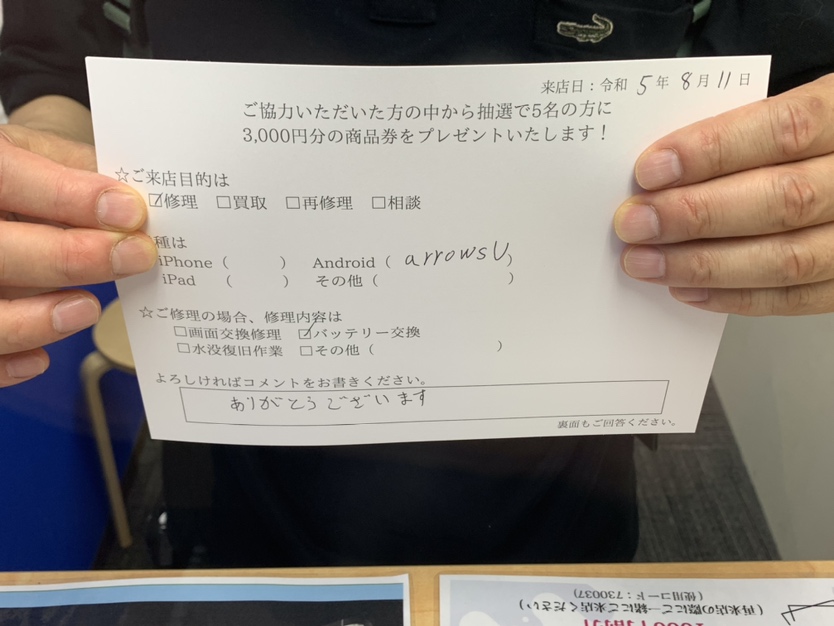 来店日：令和 5年 8月 11日
ご協力いただいた方の中から抽選で5名の方に
3,000円分の商品券をプレゼントいたします！
☆ご来店目的は
☑修理 □買取 □再修理 □相談
種は
iPhone（ ） Android（ arrowsU ）
iPad （ ） その他（ ）
☆ご修理の場合、修理内容は
□画面交換修理 ☑バッテリー交換
□水没復旧作業 □その他（ ）
よろしければコメントをお書きください。
ありがとうございます
裏面もご回答ください。
（再来店の際にご一緒にご来店ください）
（使用コード：730037）